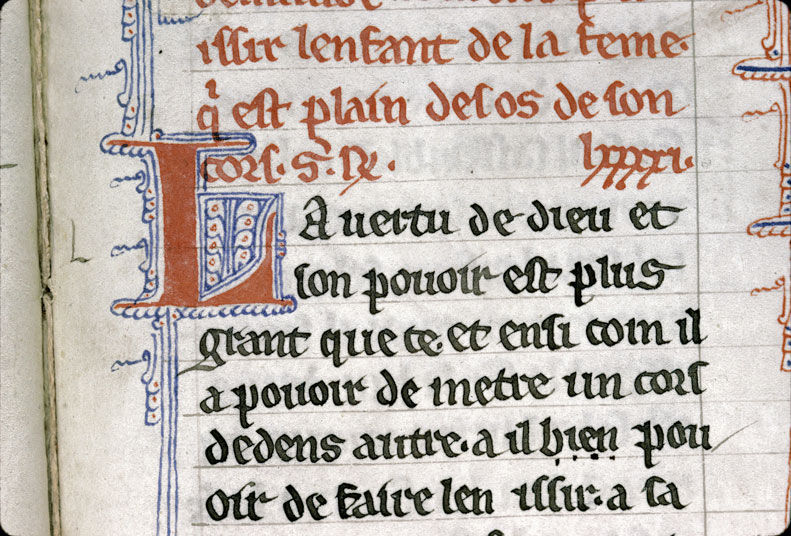 issir lenfant de la feme.
qͥ est plain desos de son
cors. S. R. lxxxxi.
LA uertu de dieu et
son pouoir est plus
grant que ce. et ensi com il
a pouoir de metre un cors
dedens autre. a il bien pou
oir de faire len issir. a sa